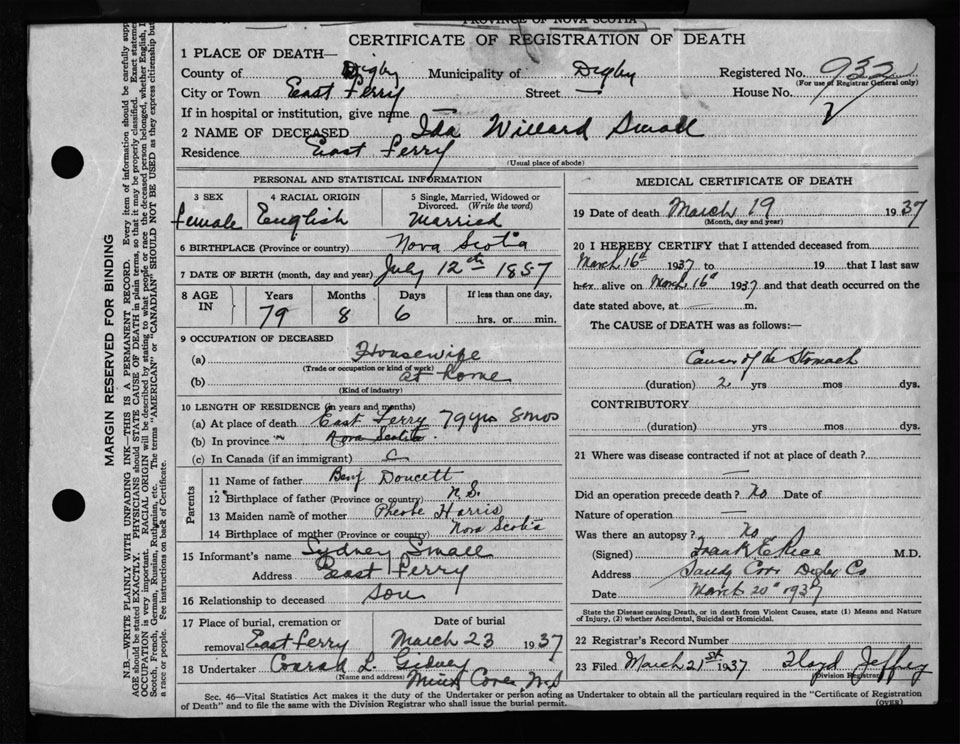 PROVINCE OF NOVA SCOTIA
CERTIFICATE OF REGISTRATION OF DEATH
1 PLACE OF DEATH—
County of Digby Municipality of Digby Registered No. 932
(For use of Registrar General only)
City or Town East Ferry Street — House No.
If in hospital or institution, give name —
2 NAME OF DECEASED Ida Willard Small
Residence East Ferry
(Usual place of abode)
PERSONAL AND STATISTICAL INFORMATION
3 SEX 4 RACIAL ORIGIN 5 Single, Married, Widowed or Divorced. (Write the word)
female English Married
6 BIRTHPLACE (Province or country) Nova Scotia
7 DATE OF BIRTH (month, day and year) July 12th 1857
8 AGE IN Years Months Days If less than one day,
79 8 6 hrs. or min.
9 OCCUPATION OF DECEASED
(a) Housewife
(Trade or occupation or kind of work)
(b) at home
(Kind of industry)
10 LENGTH OF RESIDENCE (in years and months)
(a) At place of death East Ferry 79 yrs 8 mos
(b) In province " Nova Scotia
(c) In Canada (if an immigrant)
Parents
11 Name of father Benj Doucett
12 Birthplace of father (Province or country) N.S.
13 Maiden name of mother Pheobe Harris
14 Birthplace of mother (Province or country) Nova Scotia
15 Informant's name Sydney Small
Address East Ferry
16 Relationship to deceased son
17 Place of burial, cremation or removal Date of burial
East Ferry March 23 1937
18 Undertaker Conrad L. Gidney
(Name and address) Mink Cove N.S
MEDICAL CERTIFICATE OF DEATH
19 Date of death March 19 1937
(Month, day and year)
20 I HEREBY CERTIFY that I attended deceased from
March 16th 1937 to 19 that I last saw
her alive on March 16th 1937 and that death occurred on the
date stated above, at m.
The CAUSE of DEATH was as follows:—
Cancer of the Stomach
(duration) 2 yrs mos dys.
CONTRIBUTORY
(duration) yrs mos dys.
21 Where was disease contracted if not at place of death?
—
Did an operation precede death? No Date of
Nature of operation —
Was there an autopsy? No
(Signed) Frank E Rice M.D.
Address Sandy Cove Digby Co
Date March 20th 1937
State the Disease causing Death, or in death from Violent Causes, state (1) Means and Nature
of Injury, (2) whether Accidental, Suicidal or Homicidal.
22 Registrar's Record Number
23 Filed March 21st 1937 Lloyd Jeffrey
Division Registrar
Sec. 46—Vital Statistics Act makes it the duty of the Undertaker or person acting as Undertaker to obtain all the particulars required in the "Certificate of Registration
of Death" and to file the same with the Division Registrar who shall issue the burial permit.
(OVER)
MARGIN RESERVED FOR BINDING
N.B.—WRITE PLAINLY WITH UNFADING INK—THIS IS A PERMANENT RECORD. Every item of information should be carefully supp
AGE should be stated EXACTLY. PHYSICIANS should STATE CAUSE OF DEATH in plain terms, so that it may be properly classified. Exact statemen
OCCUPATION is very important. RACIAL ORIGIN will be described by stating to what people or race the deceased person belonged, whether English, I
Scotch, French, German, Russian, Ruthenian, etc. The terms "AMERICAN" or "CANADIAN" SHOULD NOT BE USED as they express citizenship but
a race or people. See instructions on back of Certificate.